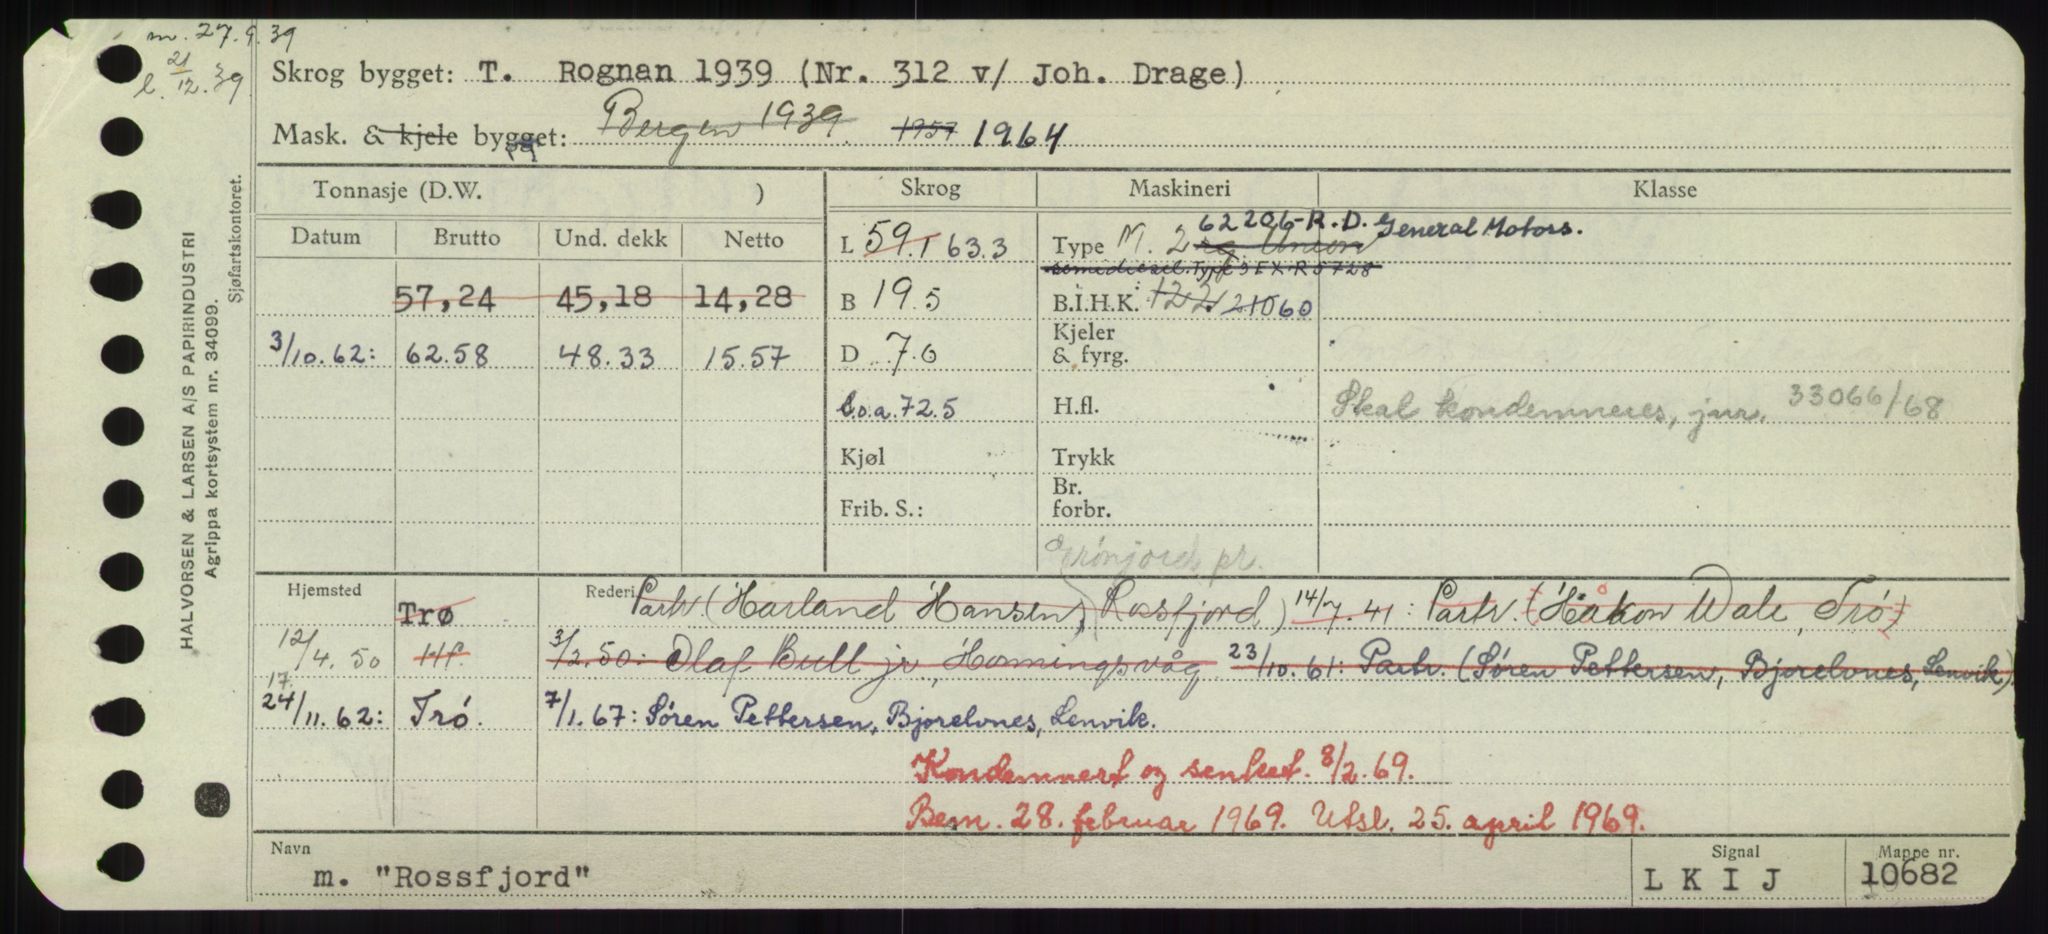 m. 27.9.39
l. 21/12.39
Skrog bygget: T. Rognan 1939 (Nr. 312 v/ Joh. Drage)
Mask. & kjele bygget: Bergen 1939. 1957 1964
Tonnasje (D.W. ) Skrog Maskineri Klasse
Datum Brutto Und. dekk Netto
L 59.1 63.3 Type M. 2 62206-R.D. General Motors.
semidiesel. Type
57,24 45,18 14,28 B 19.5 B.I.H.K. 122 210 60
3/10.62: 62.58 48.33 15.57 D 7.0 Kjeler & fyrg.
l.o.a. 72.5 H.fl. Skal kondemneres, jnr. 33066/68
Kjøl Trykk
Frib. S.: Br. forbr.
Grønjord pr.
Hjemsted Trø Rederi Partr. (Harland Hansen, Rossfjord) 14/7.41: Partr. (Håkon Wale, Trø)
12/4.50 Hf. 3/2.50: Olaf Bull jr., Honningsvåg 23/10.61: Partr. (Søren Pettersen, Bjorelvnes, Lenvik).
17.
24/11.62: Trø. 7/1.67: Søren Pettersen, Bjorelvnes, Lenvik.
Kondemnert og senket. 8/2.69.
Bem. 28. februar 1969. Utsl. 25. april 1969.
Navn m. "Rossfjord" Signal L K I J Mappe nr. 10682
HALVORSEN & LARSEN A/S PAPIRINDUSTRI
Agrippa kortsystem nr. 34099.
Sjøfartskontoret.